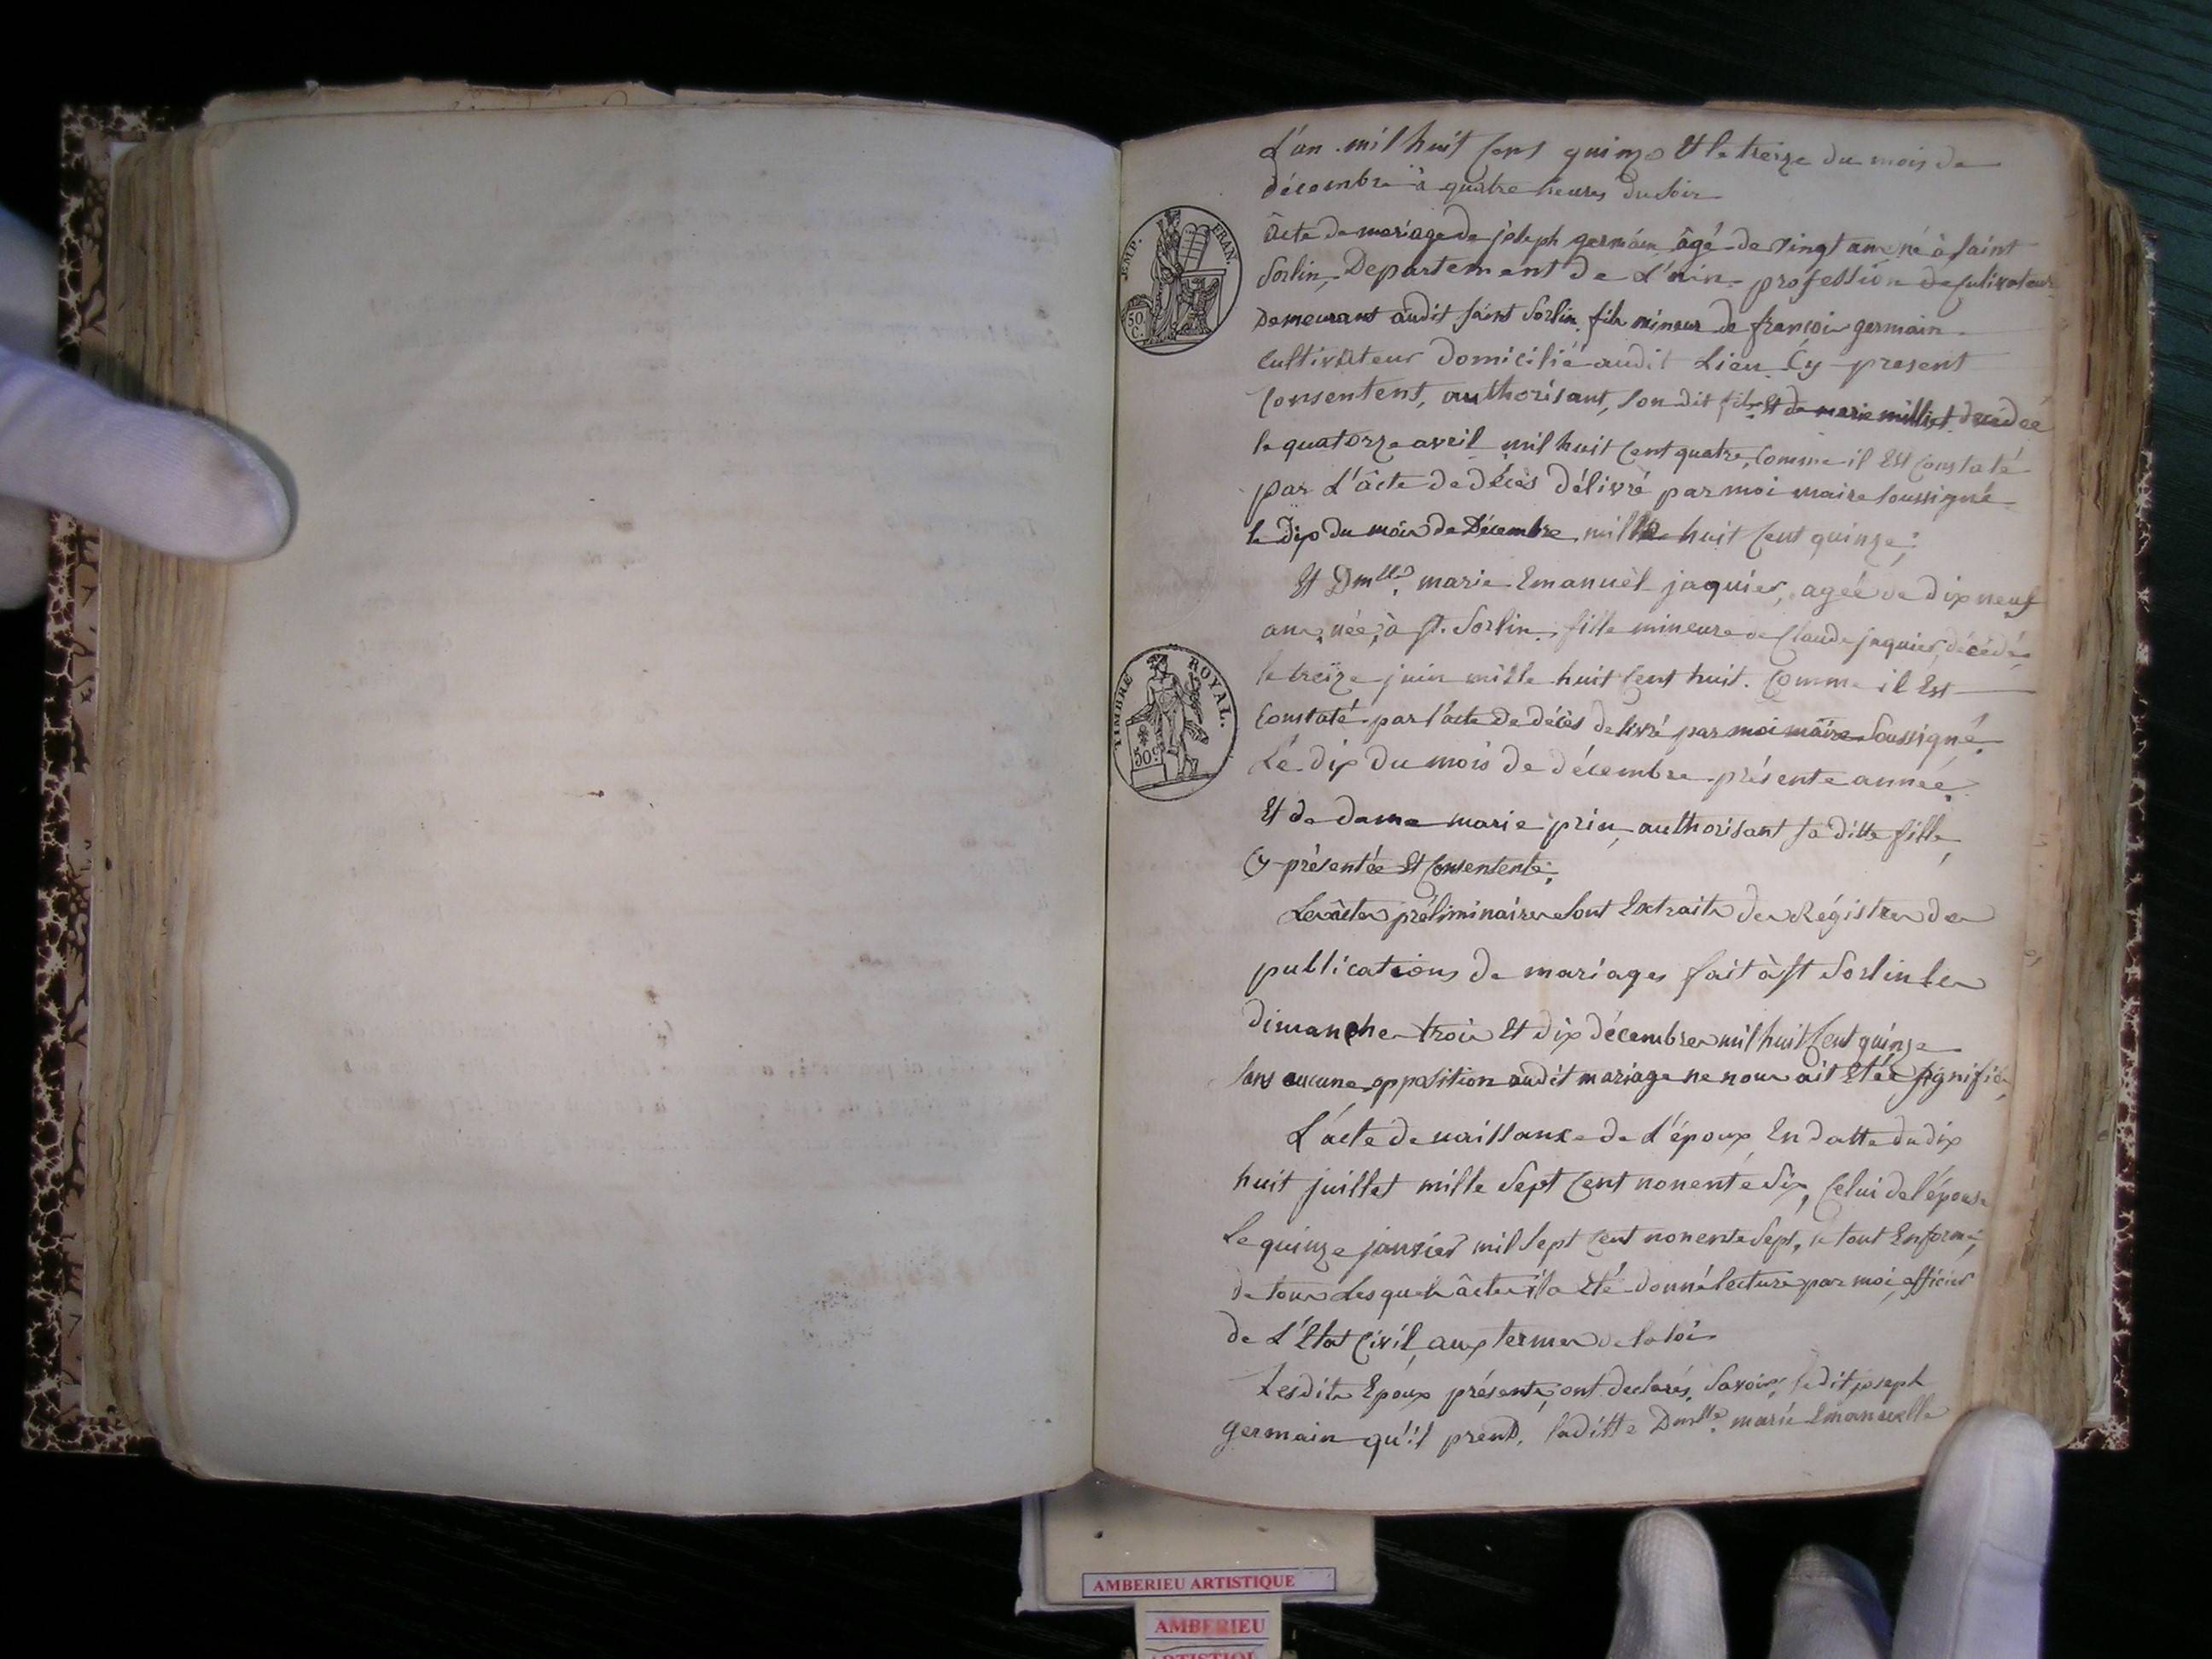 L'an mil huit cent quinze Et le treize du mois de
décembre à quatre heures du soir
EMP. FRAN.
50 C.
Acte de mariage de joseph germain âgé de vingt ans né à saint
Sorlin, Departement de L'ain profession de cultivateur
Demeurant audit saint Sorlin, fils mineur de françois germain
cultivateur domicilié audit Lieu Cy present
Consentent, authorisant, son dit fils Et de marie milliet decedée
le quatorze avril mil huit cent quatre, Comme il Est constaté
par L'âcte de décès délivré par moi maire soussigné
le dix du mois de Décembre mille huit cent quinze;
Et Dmlle. marie Emanuèl jaquier, ageé de dix neuf
ans, née, à St. Sorlin, fille mineure de Claude jaquier, décédé,
le treize juin mille huit cent huit. Comme il Est
TIMBRE ROYAL.
50 C.
Constaté par l'acte de décès delivré par moi maire soussigné,
Le dix du mois de décembre présente année.
Et de dame marie prin, authorisant sa ditte fille,
Cy présentée Et Consentente.
Les âctes préliminaires sont Extraits des Régistres des
publications de mariages fait à St Sorlin les
dimanches trois Et dix décembres mil huit cent quinze
sans aucune opposition audit mariage ne nous ait Etée signifié,
L'acte de naissance de L'époux En datte du dix
huit juillet mille sept cent nonente Six, Celui de l'épouse
Le quinze janvier mil sept cent nonente Sept, le tout En forme,
de tous Lesquels âctes il a Eté donné lecture par moi, officier
de L'Etat Civil, aux termes de la loi
Lesdits Epoux présents, ont declarés, Savoir, ledit joseph
germain qu'il prend, laditte Dmlle. marie Emanuelle
AMBERIEU ARTISTIQUE
AMBERIEU
ARTISTIQUE